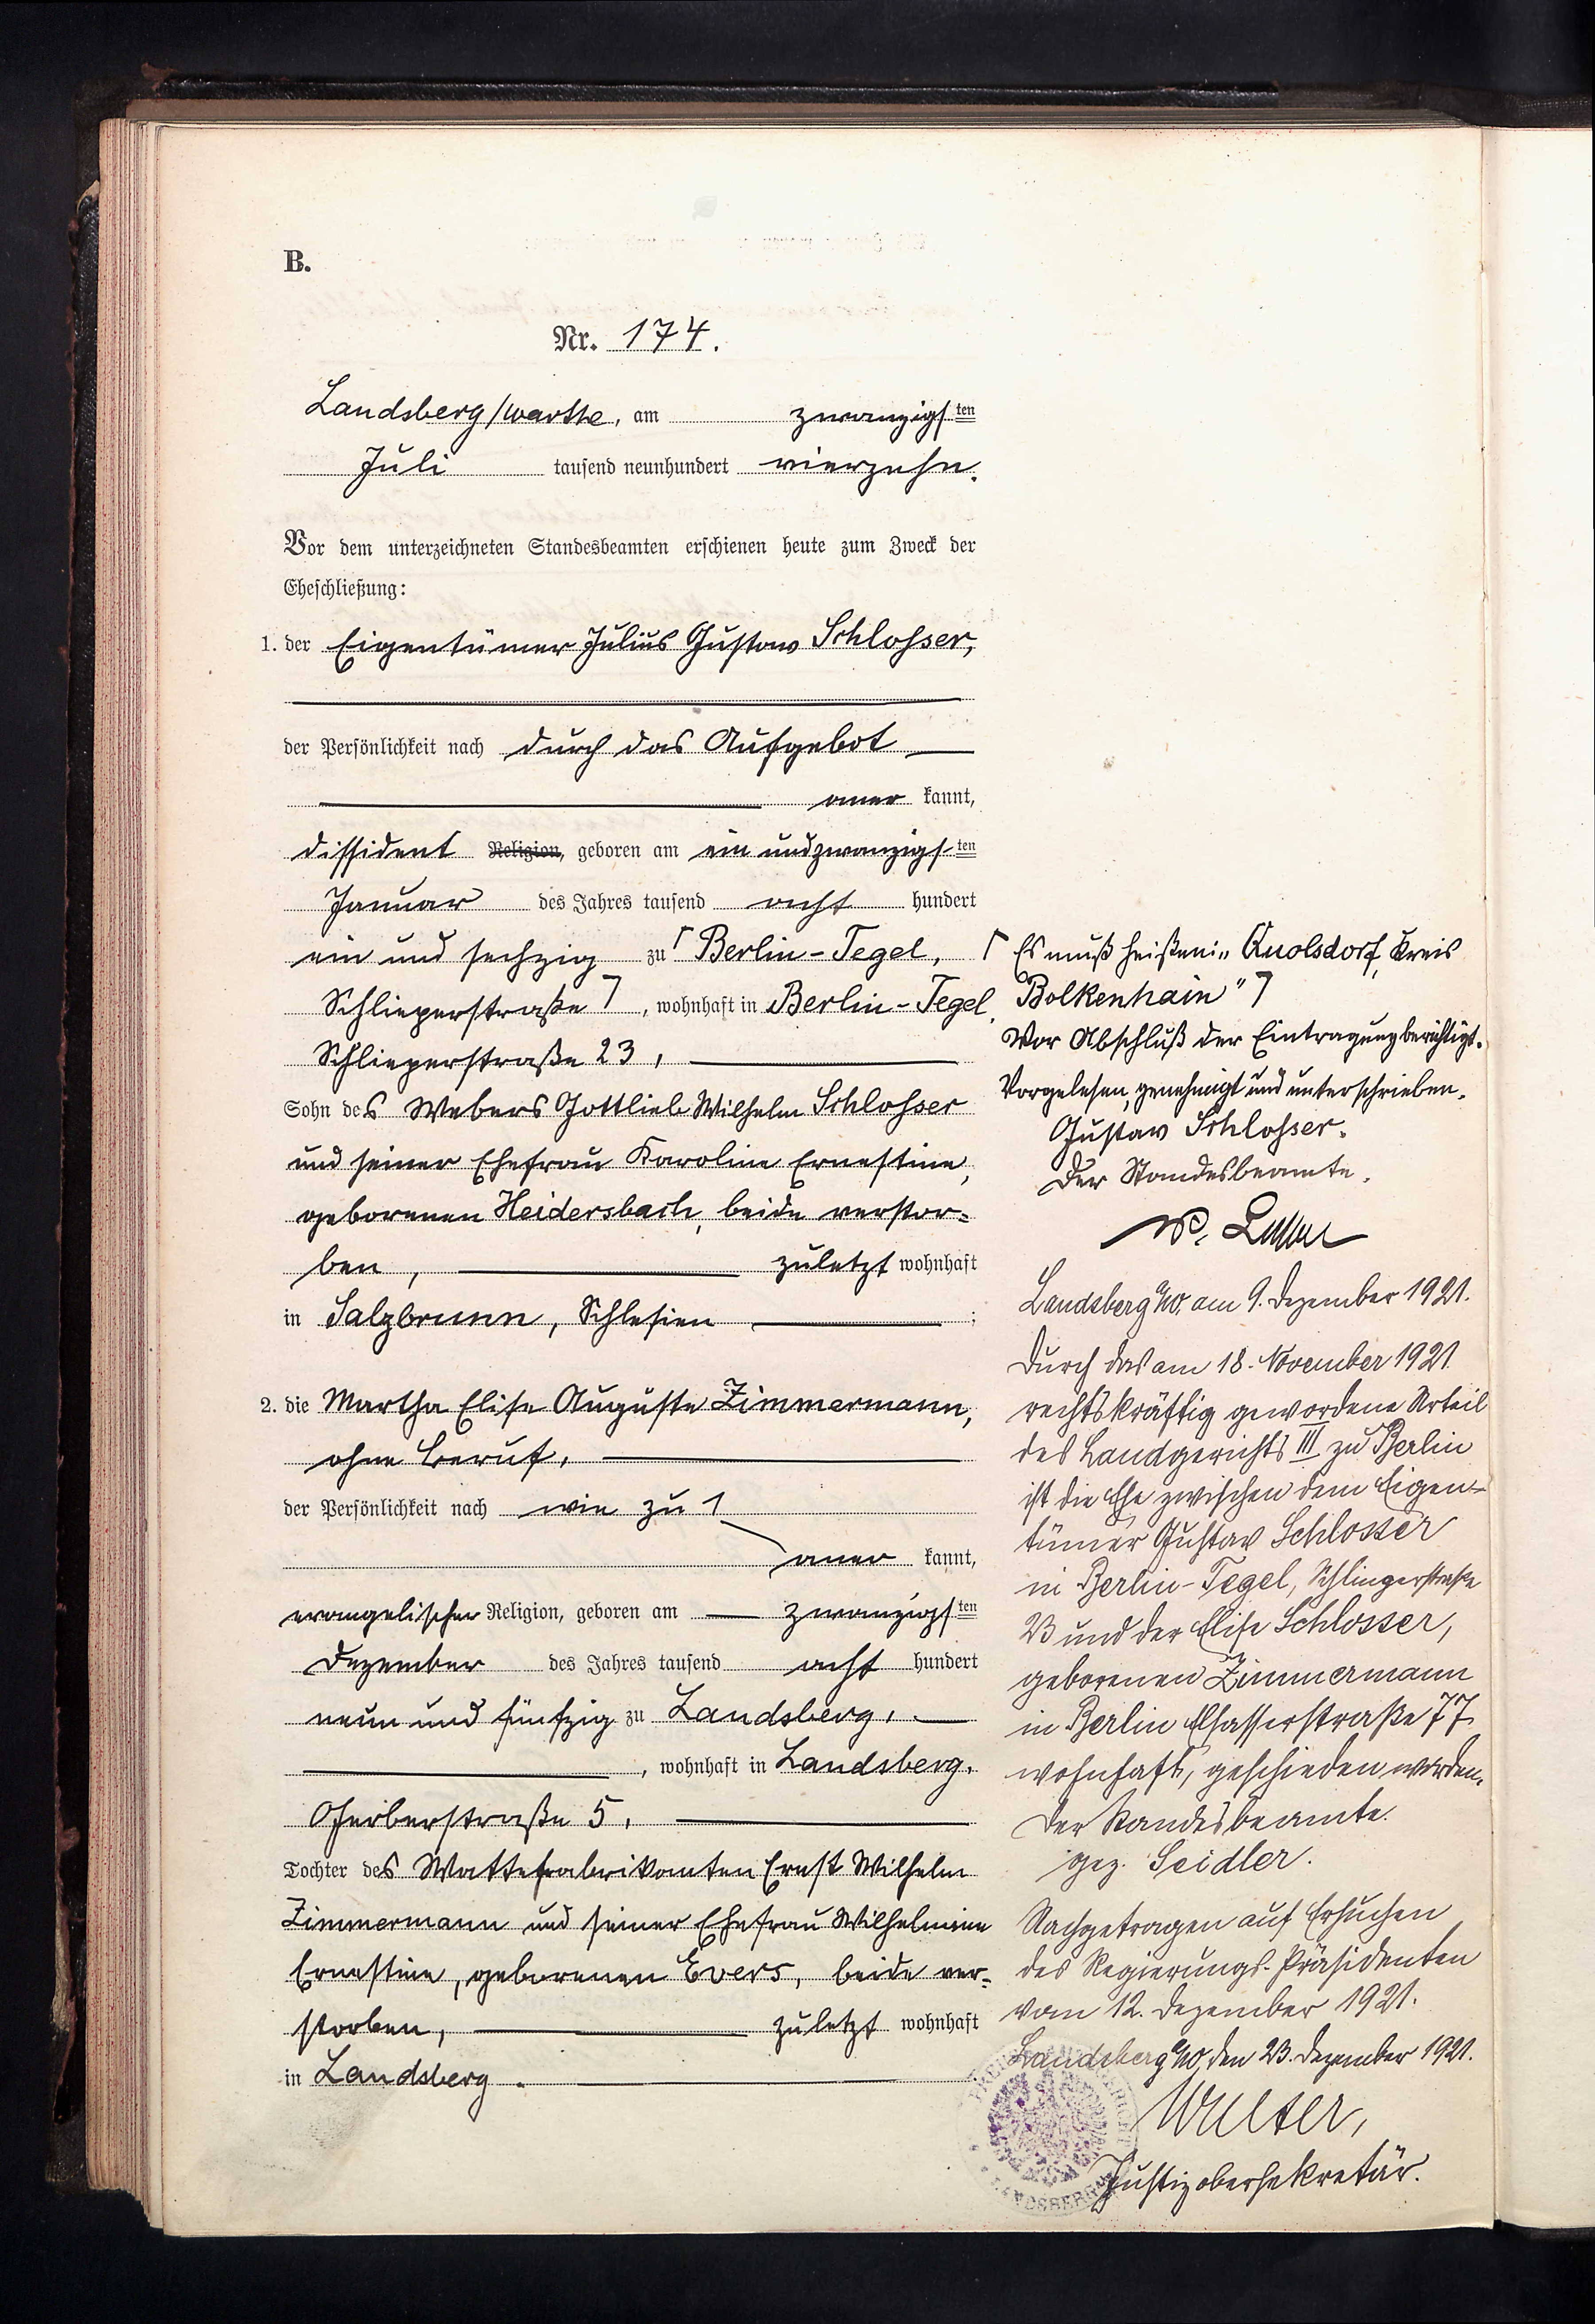 B.
Nr. 174.
Landsberg/Warthe, am zwanzigsten
Juli tausend neunhundert vierzehn.
Vor dem unterzeichneten Standesbeamten erschienen heute zum Zweck der
Eheschließung:
1. der Eigentümer Julius Gustav Schlosser,
der Persönlichkeit nach durch das Aufgebot
aner kannt,
dissident Religion, geboren am ein und zwanzigsten
Januar des Jahres tausend acht hundert
ein und sechzig zu ⌈ Berlin-Tegel,
Schlieperstraße ⌉, wohnhaft in Berlin-Tegel,
Schlieperstraße 23,
Sohn des Webers Gottlieb Wilhelm Schlosser
und seiner Ehefrau Karoline Ernestine,
geborenen Heidersbach, beide verstor-
ben, zuletzt wohnhaft
in Salzbrunn, Schlesien ;
2. die Martha Elise Auguste Zimmermann,
ohne Beruf,
der Persönlichkeit nach wie zu 1
aner kannt,
evangelischer Religion, geboren am zwanzigsten
Dezember des Jahres tausend acht hundert
neun und fünfzig zu Landsberg,
, wohnhaft in Landsberg,
Gerberstraße 5,
Tochter des Wattefabrikanten Ernst Wilhelm
Zimmermann und seiner Ehefrau Wilhelmine
Ernestine, geborenen Evers, beide ver-
storben, zuletzt wohnhaft
in Landsberg.
⌈ Es muß heißen: „Quolsdorf, Kreis
Bolkenhain" ⌉
Vor Abschluß der Eintragung berichtigt.
Vorgelesen, genehmigt und unterschrieben.
Gustav Schlosser.
Der Standesbeamte.
Landsberg a/W. am 9. Dezember 1921.
Durch das am 18. November 1921
rechtskräftig gewordene Urteil
des Landgerichts III zu Berlin
ist die Ehe zwischen dem Eigen-
tümer Gustav Schlosser
in Berlin-Tegel, Schlieperstraße
23 und der Elise Schlosser,
geborenen Zimmermann
in Berlin Elsasserstraße 77
wohnhaft, geschieden worden.
Der Standesbeamte.
gez. Seidler.
Nachgetragen auf Ersuchen
des Regierungs-Präsidenten
vom 12. Dezember 1921.
Landsberg a/W, den 23. Dezember 1921.
Justizobersekretär.